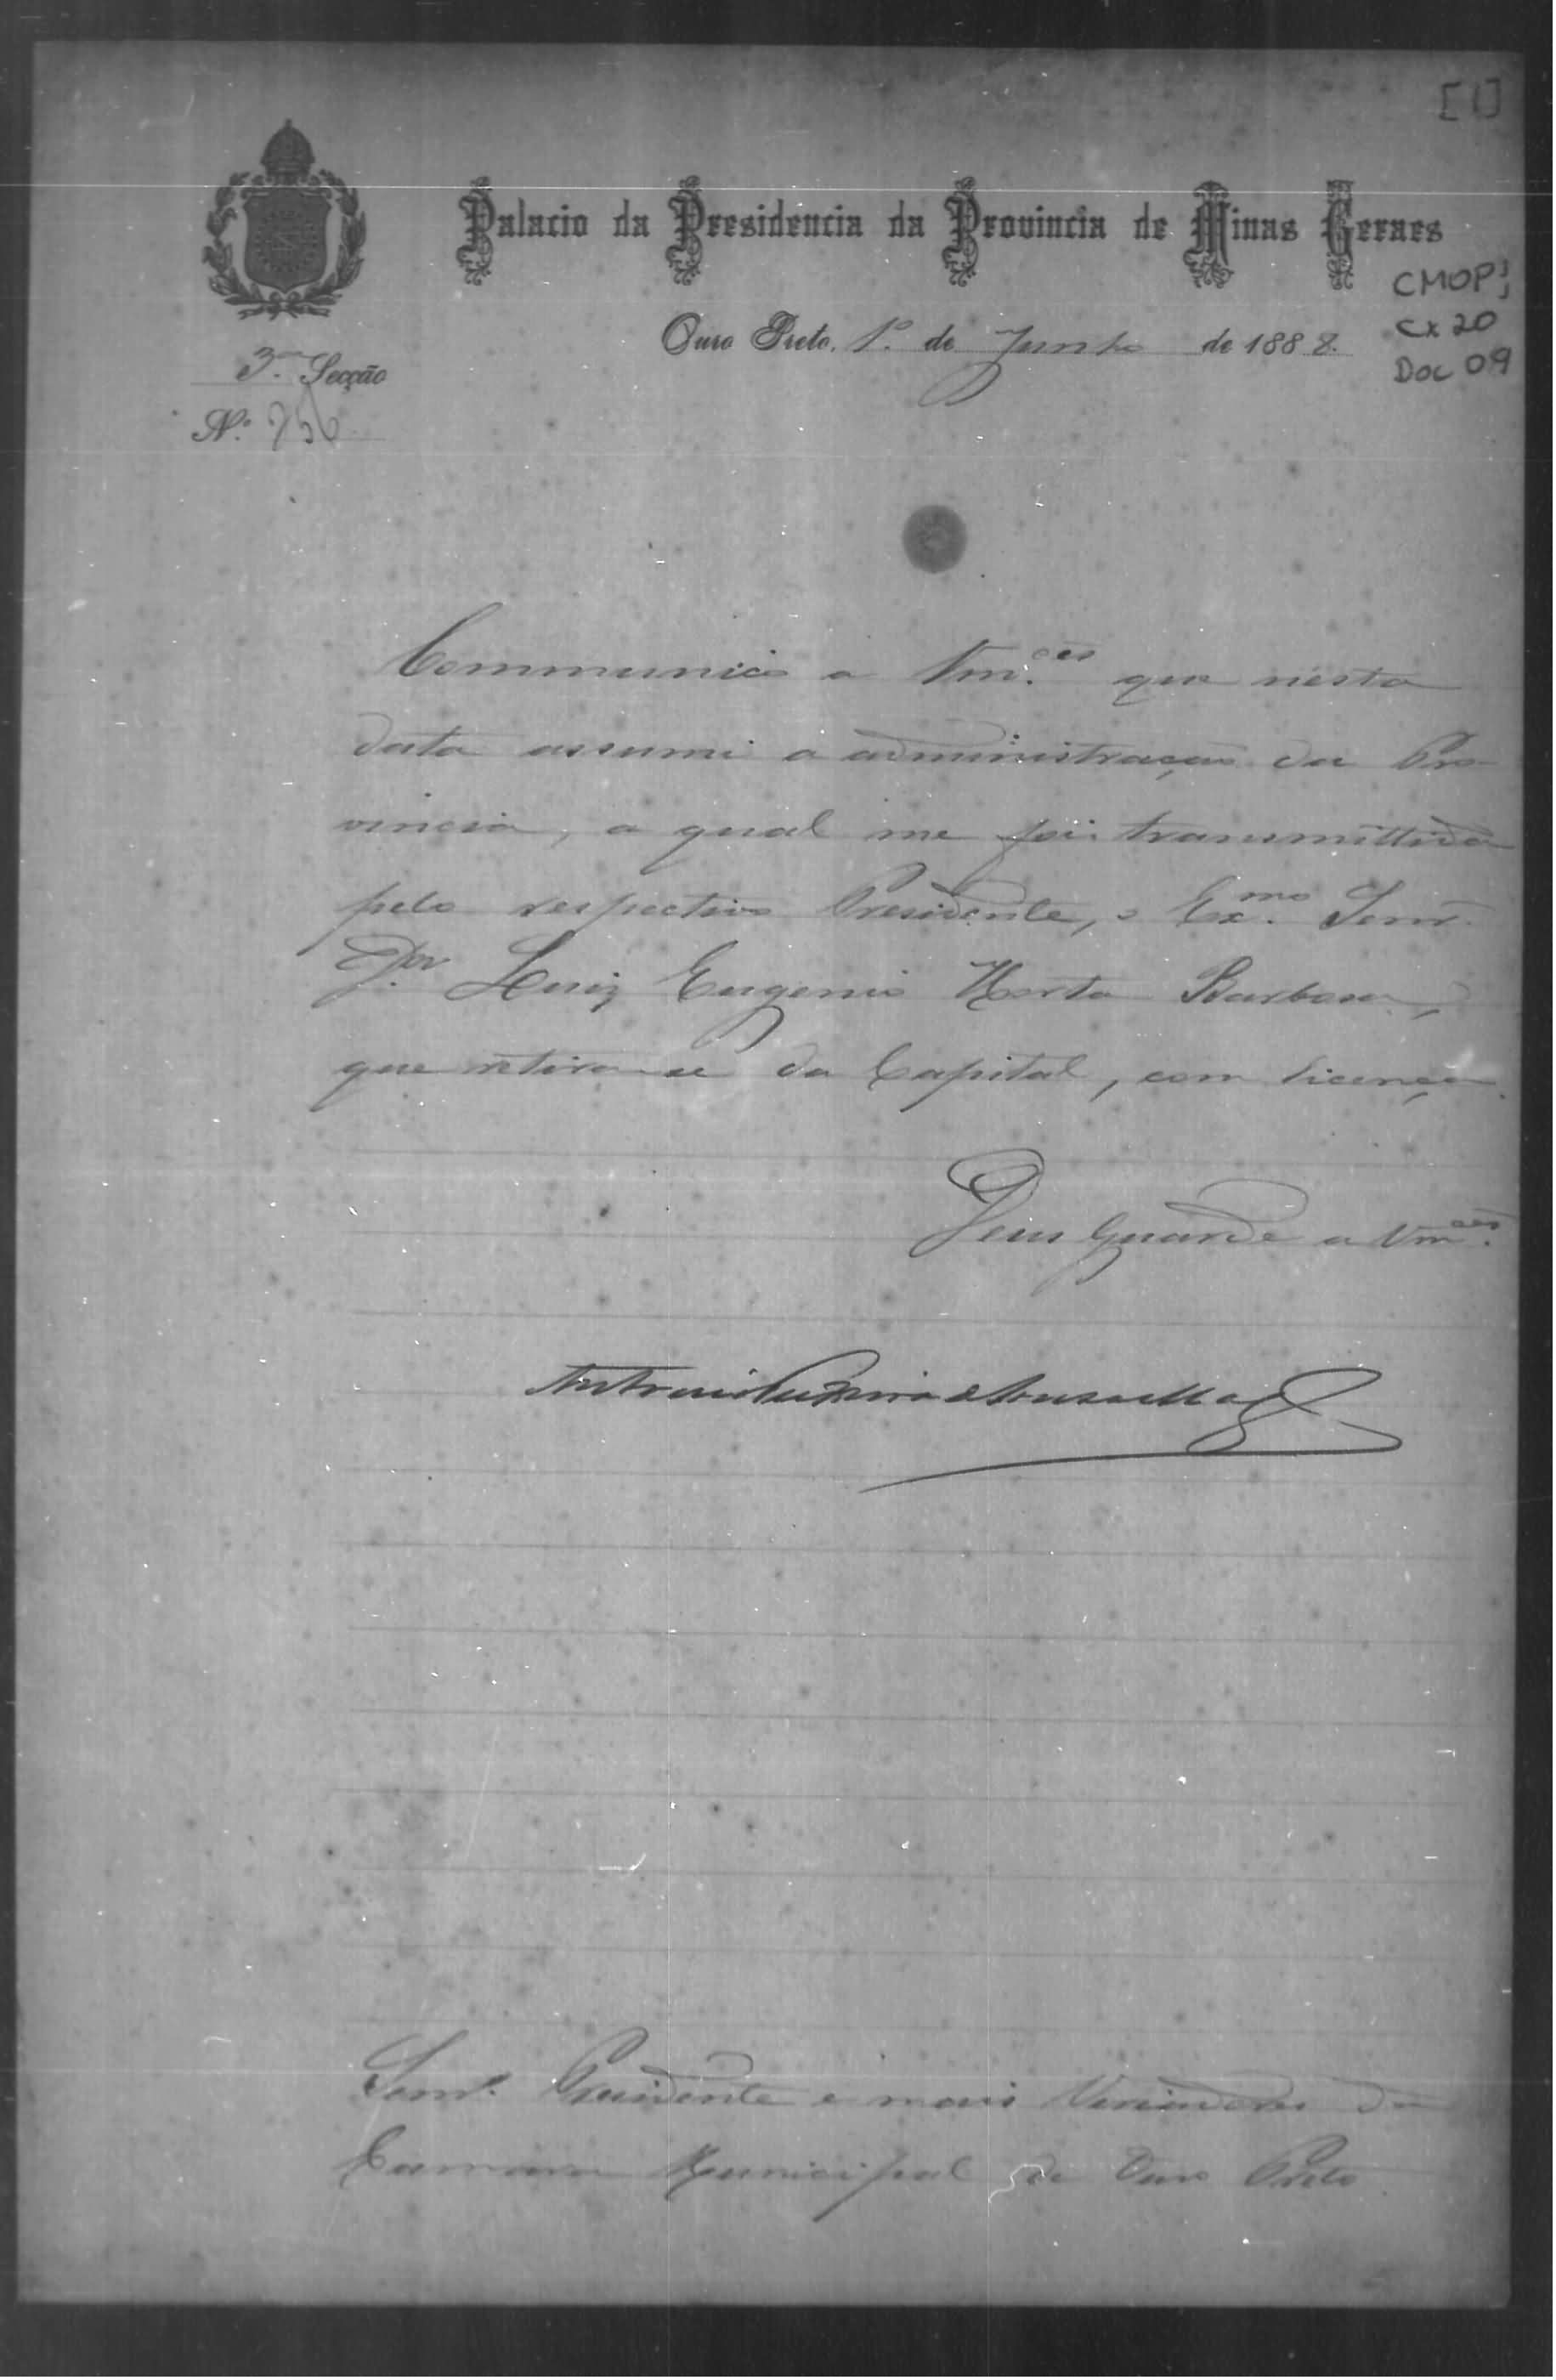 [1]
Palacio da Presidencia da Provincia de Minas Geraes
CMOP
Cx 20
Doc 09
Ouro Preto, 1º de Junho de 1888.
3ª Secção
Nº
Communico a Vm.ces que nesta
data assumi a administração da Pro-
vincia, a qual me foi transmittida
pelo respectivo Presidente, o Ex.mo Senr.
Dr. Luiz Eugenio Horta Barbosa,
que retira-se da Capital, com licença.
Deus Guarde a Vm.ces
Antonio Teixeira de Souza Mag.
Senr. Presidente e mais Vereadores da
Camara Municipal de Ouro Preto.